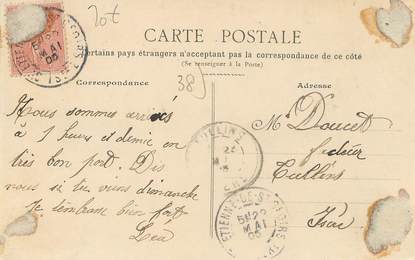 20t
CARTE POSTALE
Certains pays étrangers n'acceptant pas la correspondance de ce côté
(Se renseigner à la Poste)
38
Correspondance
Adresse
Nous sommes arrivés
à 1 heure et demie en
très bon port. Dis
nous si tu viens dimanche
Je t'embrasse bien fort
Léa
Mr Doucet
Tullins
Isère
TULLINS
ETIENNE-DE-ST-GEOIRS
5E 22
MAI
05